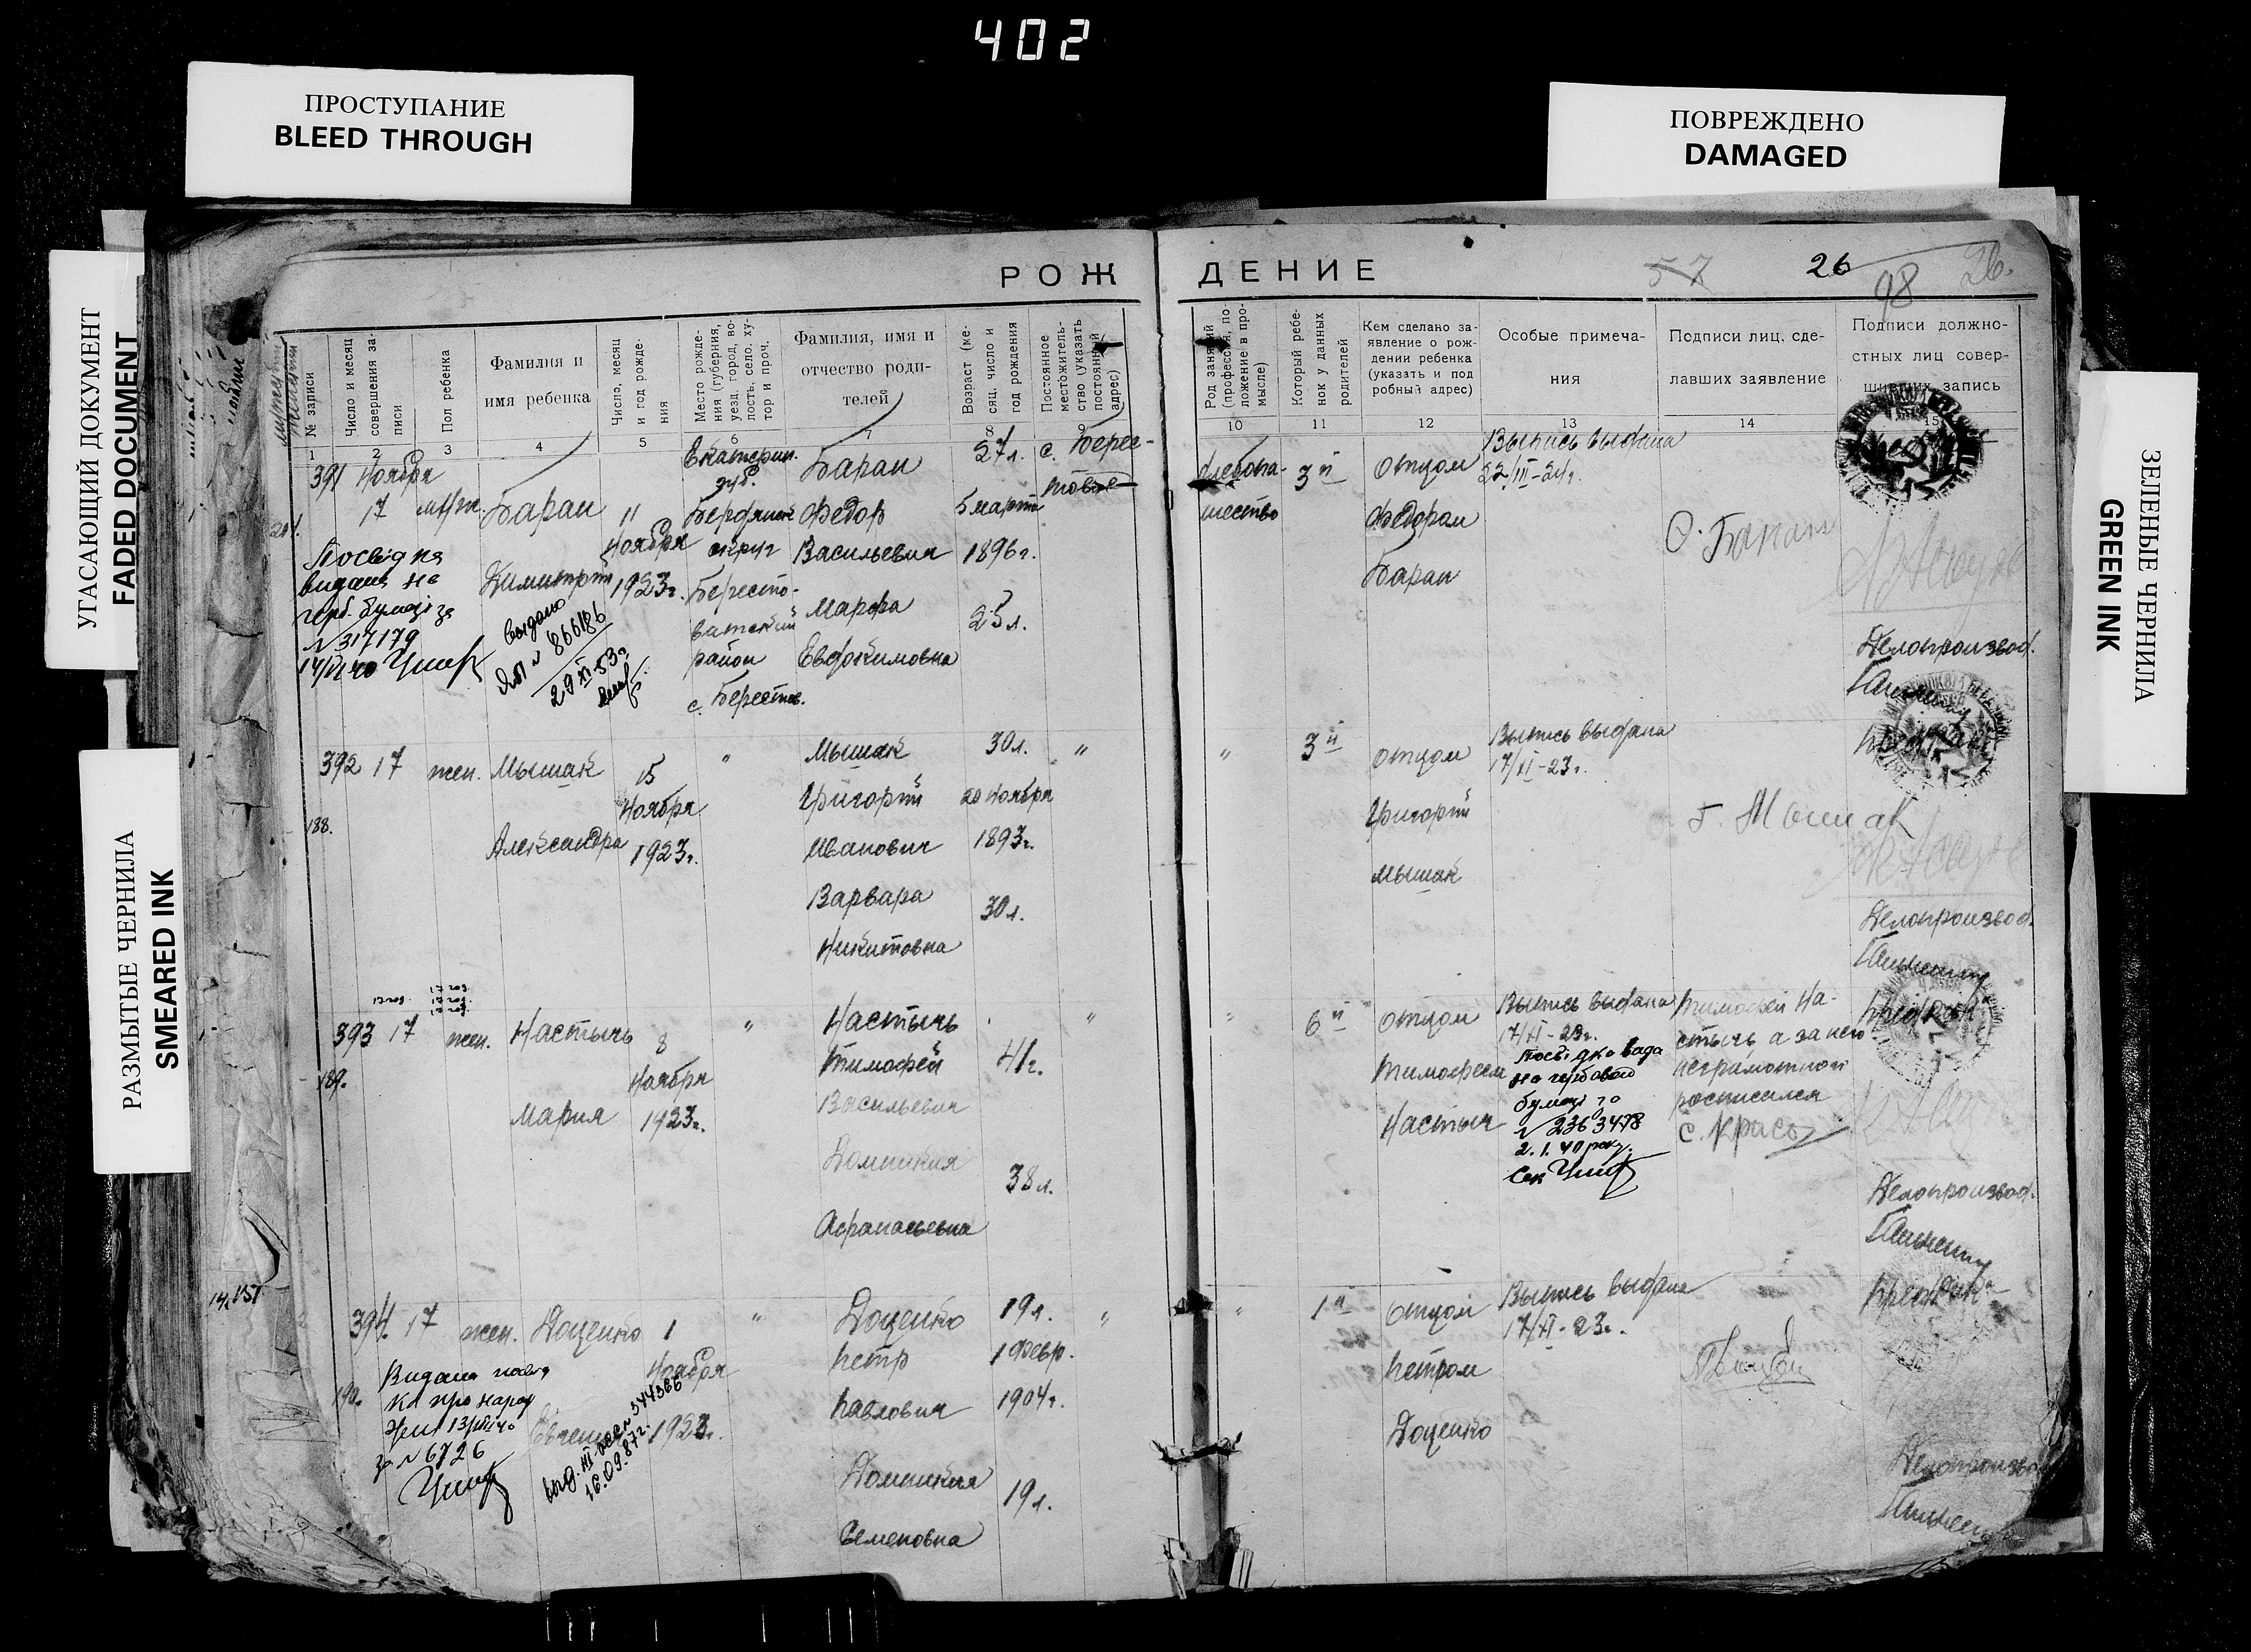 402
ПРОСТУПАНИЕ
BLEED THROUGH
ПОВРЕЖДЕНО
DAMAGED
УГАСАЮЩИЙ ДОКУМЕНТ
FADED DOCUMENT
РАЗМЫТЫЕ ЧЕРНИЛА
SMEARED INK
ЗЕЛЕНЫЕ ЧЕРНИЛА
GREEN INK
РОЖДЕНИЕ
57 26 98 26.
№ записи
Число и месяц совершения записи
Пол ребенка
Фамилия и
имя ребенка
Число, месяц
и год рождения
Место рождения (губерния,
уезд, город, волость, село, хутор и проч.
Фамилия, имя и
отчество роди-
телей
Возраст (месяц, число и
год рождения
Постоянное
местожительство (указать
постоянный
адрес)
Род занятий
(профессия, положение в промысле)
Который ребенок у данных
родителей
Кем сделано за-
явление о рож-
дении ребенка
(указать и под
робный адрес)
Особые примеча-
ния
Подписи лиц, сде-
лавших заявление
Подписи должно-
стных лиц совер-
шивших запись
1 2 3 4 5 6 7 8 9 10 11 12 13 14 15
391 Ноября
17
Баран
Димитрий
11
Ноября
1923г.
Екатерин.
губ.
Бердянск
округ
Бересто-
ватский
район
с. Берестов.
Баран
Федор
Васильевич
Марфа
Евдокимовна
27л.
5 марта
1896г.
25л.
с. Берес-
товое
хлебопа-
шество
3й
отцом
Федором
Баран
Выпись выдана
22/III-24г.
Ф. Баран
Делопроизвод.
Посвідка
видана на
герб. бумазі за
№317179
выдано
№ 866186
29 XI-53г.
392 17 жен. Мышак
Александра
15
Ноября
1923г.
"
Мышак
Григорий
Иванович
Варвара
Никитовна
30л.
20 Ноября
1893г.
30л.
"
"
3й
отцом
Григорий
Мышак
Выпись выдана
17/XI-23г.
Г. Мышак
Делопроизвод.
188.
393 17 жен. Настычь
Мария
8
Ноября
1923г.
"
Настычь
Тимофей
Васильевич
Домникия
Афанасьевна
41г.
38л.
"
"
6й
отцом
Тимофеем
Настыч
Выпись выдана
17/XI-23г.
на гербовой
№ 2363478
2.1.40 року.
Тимофей На-
стычь а за него
неграмотного
росписался
Делопроизвод.
189.
394. 17 жен. Доценко
1
Ноября
1923г.
"
Доценко
Петр
Павлович
Домникия
Семеновна
19л.
1 Февр.
1904г.
19л.
"
"
1й
отцом
Петром
Доценко
Выпись выдана
17/XI-23г.
190.
за №6726
16.09.87г.